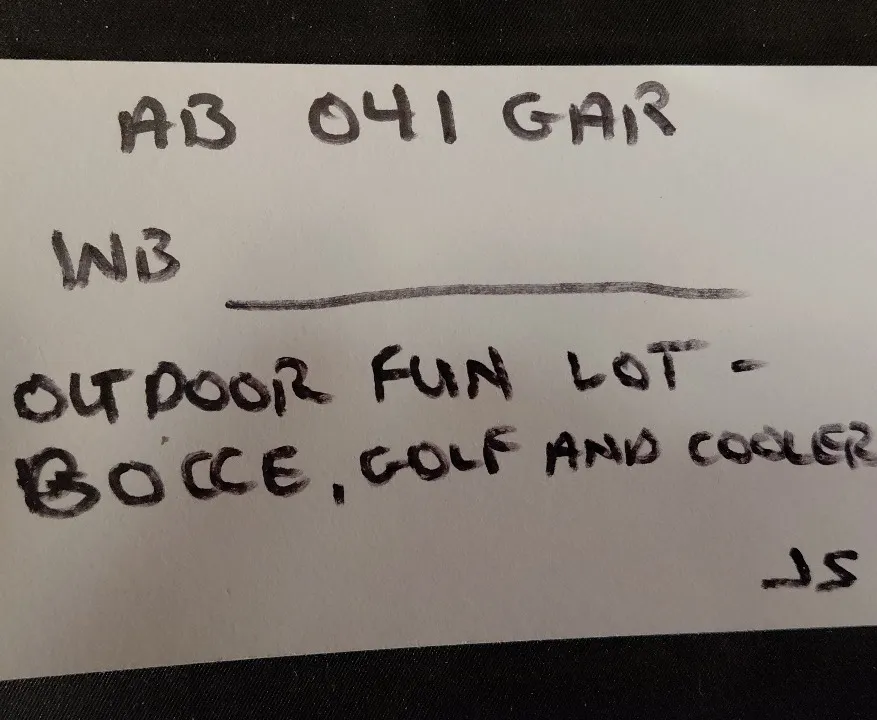 AB 041 GAR
WB
OUTDOOR FUN LOT -
BOCCE, GOLF AND COOLER
JS